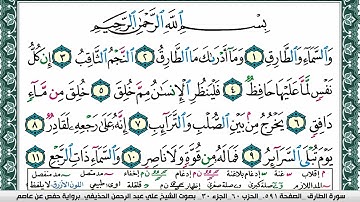 بِسْمِ ٱللَّهِ ٱلرَّحْمَٰنِ ٱلرَّحِيمِ
وَٱلسَّمَآءِ وَٱلطَّارِقِ ١ وَمَآ أَدْرَىٰكَ مَا ٱلطَّارِقُ ٢ ٱلنَّجْمُ ٱلثَّاقِبُ ٣ إِن كُلُّ
نَفْسٍ لَّمَّا عَلَيْهَا حَافِظٌ ٤ فَلْيَنظُرِ ٱلْإِنسَٰنُ مِمَّ خُلِقَ ٥ خُلِقَ مِن مَّآءٍ
دَافِقٍ ٦ يَخْرُجُ مِنۢ بَيْنِ ٱلصُّلْبِ وَٱلتَّرَآئِبِ ٧ إِنَّهُۥ عَلَىٰ رَجْعِهِۦ لَقَادِرٌ ٨
يَوْمَ تُبْلَى ٱلسَّرَآئِرُ ٩ فَمَا لَهُۥ مِن قُوَّةٍ وَلَا نَاصِرٍ ١٠ وَٱلسَّمَآءِ ذَاتِ ٱلرَّجْعِ ١١
سورة الطارق الصفحة ٥٩١ الحزب ٦٠ الجزء ٣٠ بصوت الشيخ علي عبد الرحمن الحذيفي برواية حفص عن عاصم